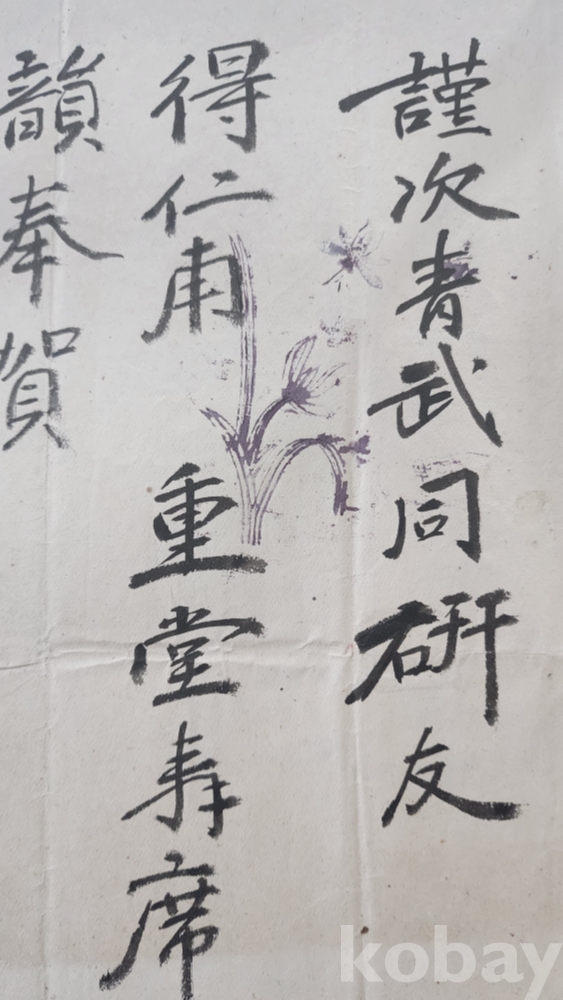 謹次青武同硏友
得仁甫 重堂壽席
韻奉賀
kobay